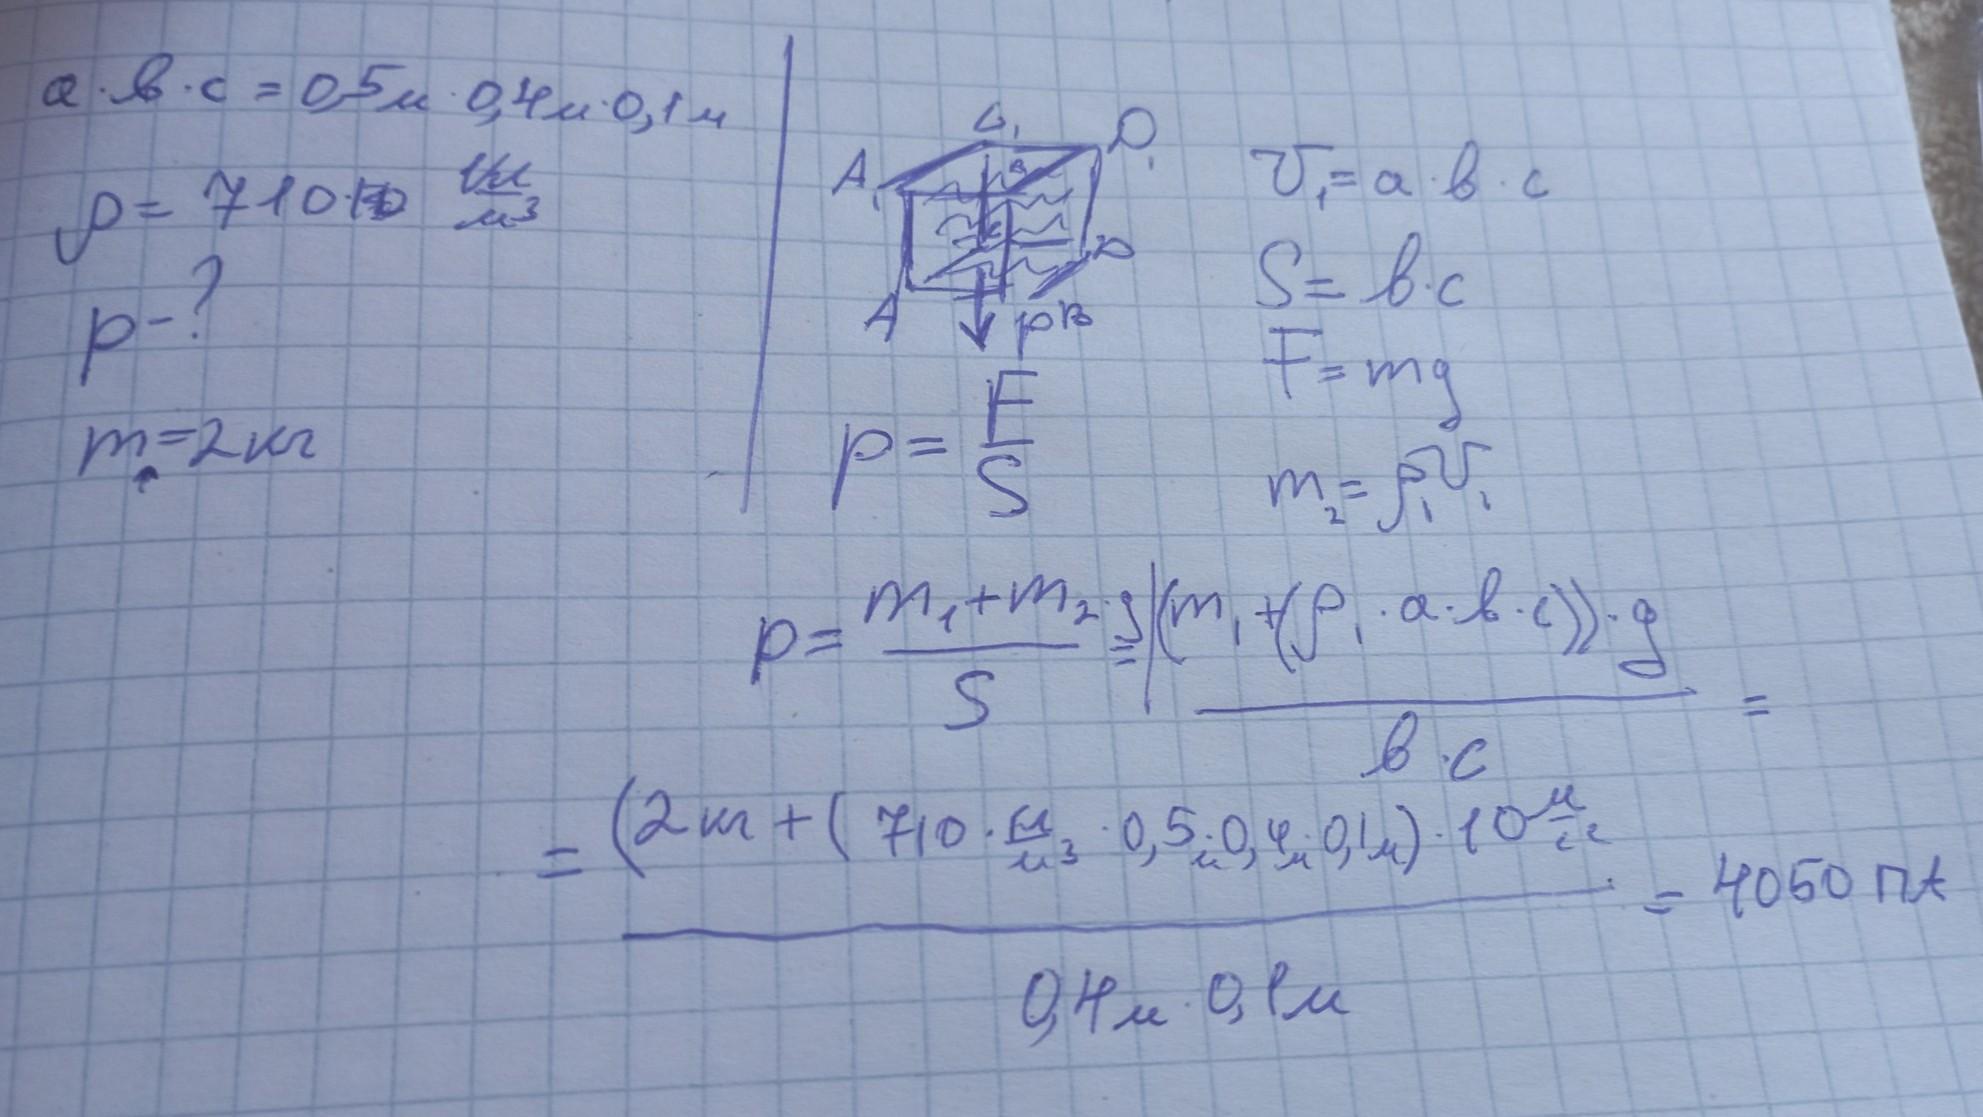 a·в·с = 0,5м·0,4м·0,1м
ρ = 710 кг/м³
p - ?
m = 2 кг
A₁ D₁
A B D
p
V₁ = a·в·с
S = в·с
F = mg
m₂ = ρ₁V₁
p = F/S
p = m₁ + m₂·g / S = (m₁ + (ρ₁·a·в·с))·g / в·с =
= (2 кг + (710·кг/м³·0,5м·0,4м·0,1м)·10 н/кг / 0,4м·0,1м = 4050 ПА